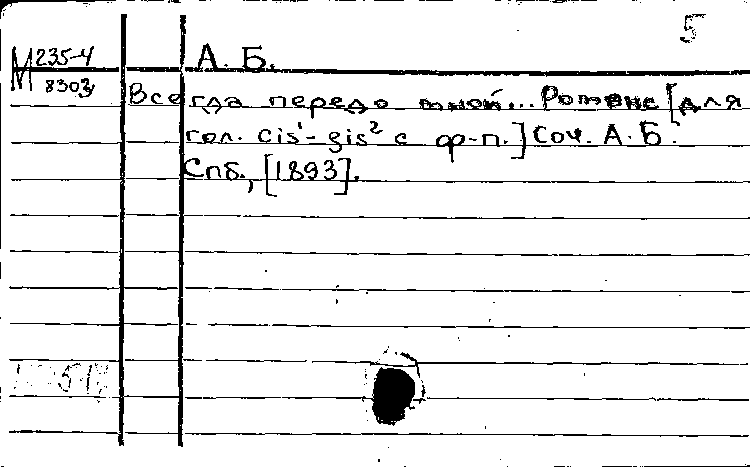 5
М 235-4
8303
А. Б.
Всегда передо мной... Романс [для
гол. cis¹-gis² с ф-п.] Соч. А. Б.
Спб., [1893].